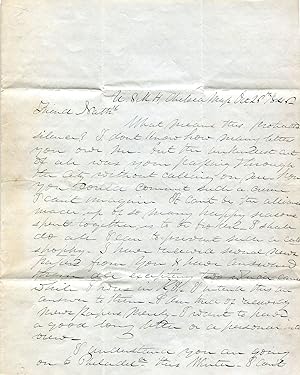 U.S.M.H. Chelsea Mass Oct 28th 1845
Friend Nath'l
What means this prolonged
silence? I dont know how many letters
you owe me but the unkindest act
of all was your passing through
the City without calling on me. How
you could commit such a crime
I cant imagine. It cant be the alliance
made up of so many happy seasons
spent together is to be I shall
do all I can to prevent such a cat-
astrophy. I have received several News
papers from you & have answered
them all excepting
while I was in N.Y. I intend this an
answer to them. I am tired of reading
newspapers merely. I want to
a good long letter or a personal inter-
view.
I understand you are going
on to Philadel this Winter. I cant